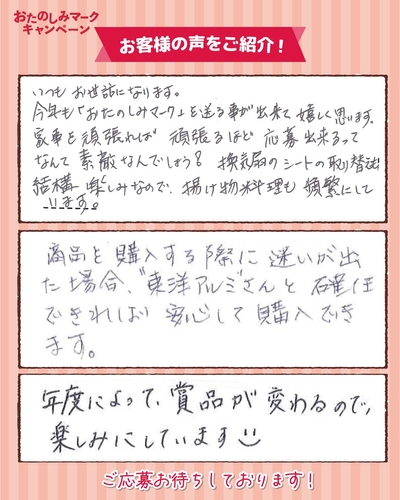 おたのしみマーク
キャンペーン
お客様の声をご紹介!
いつもお世話になります。
今年も「おたのしみマーク」を送る事が出来て嬉しく思います。
家事を頑張れば 頑張るほど 応募出来るって
なんて素敵なんでしょう? 換気扇のシートの取り替えも
結構楽しみなので、揚げ物料理も 頻繁にして
います。
商品を購入する際に迷いが出
た場合、"東洋アルミさんと確信
できれば 安心して購入でき
ます。
年度によって、賞品が変わるので、
楽しみにしています
ご応募お待ちしております!